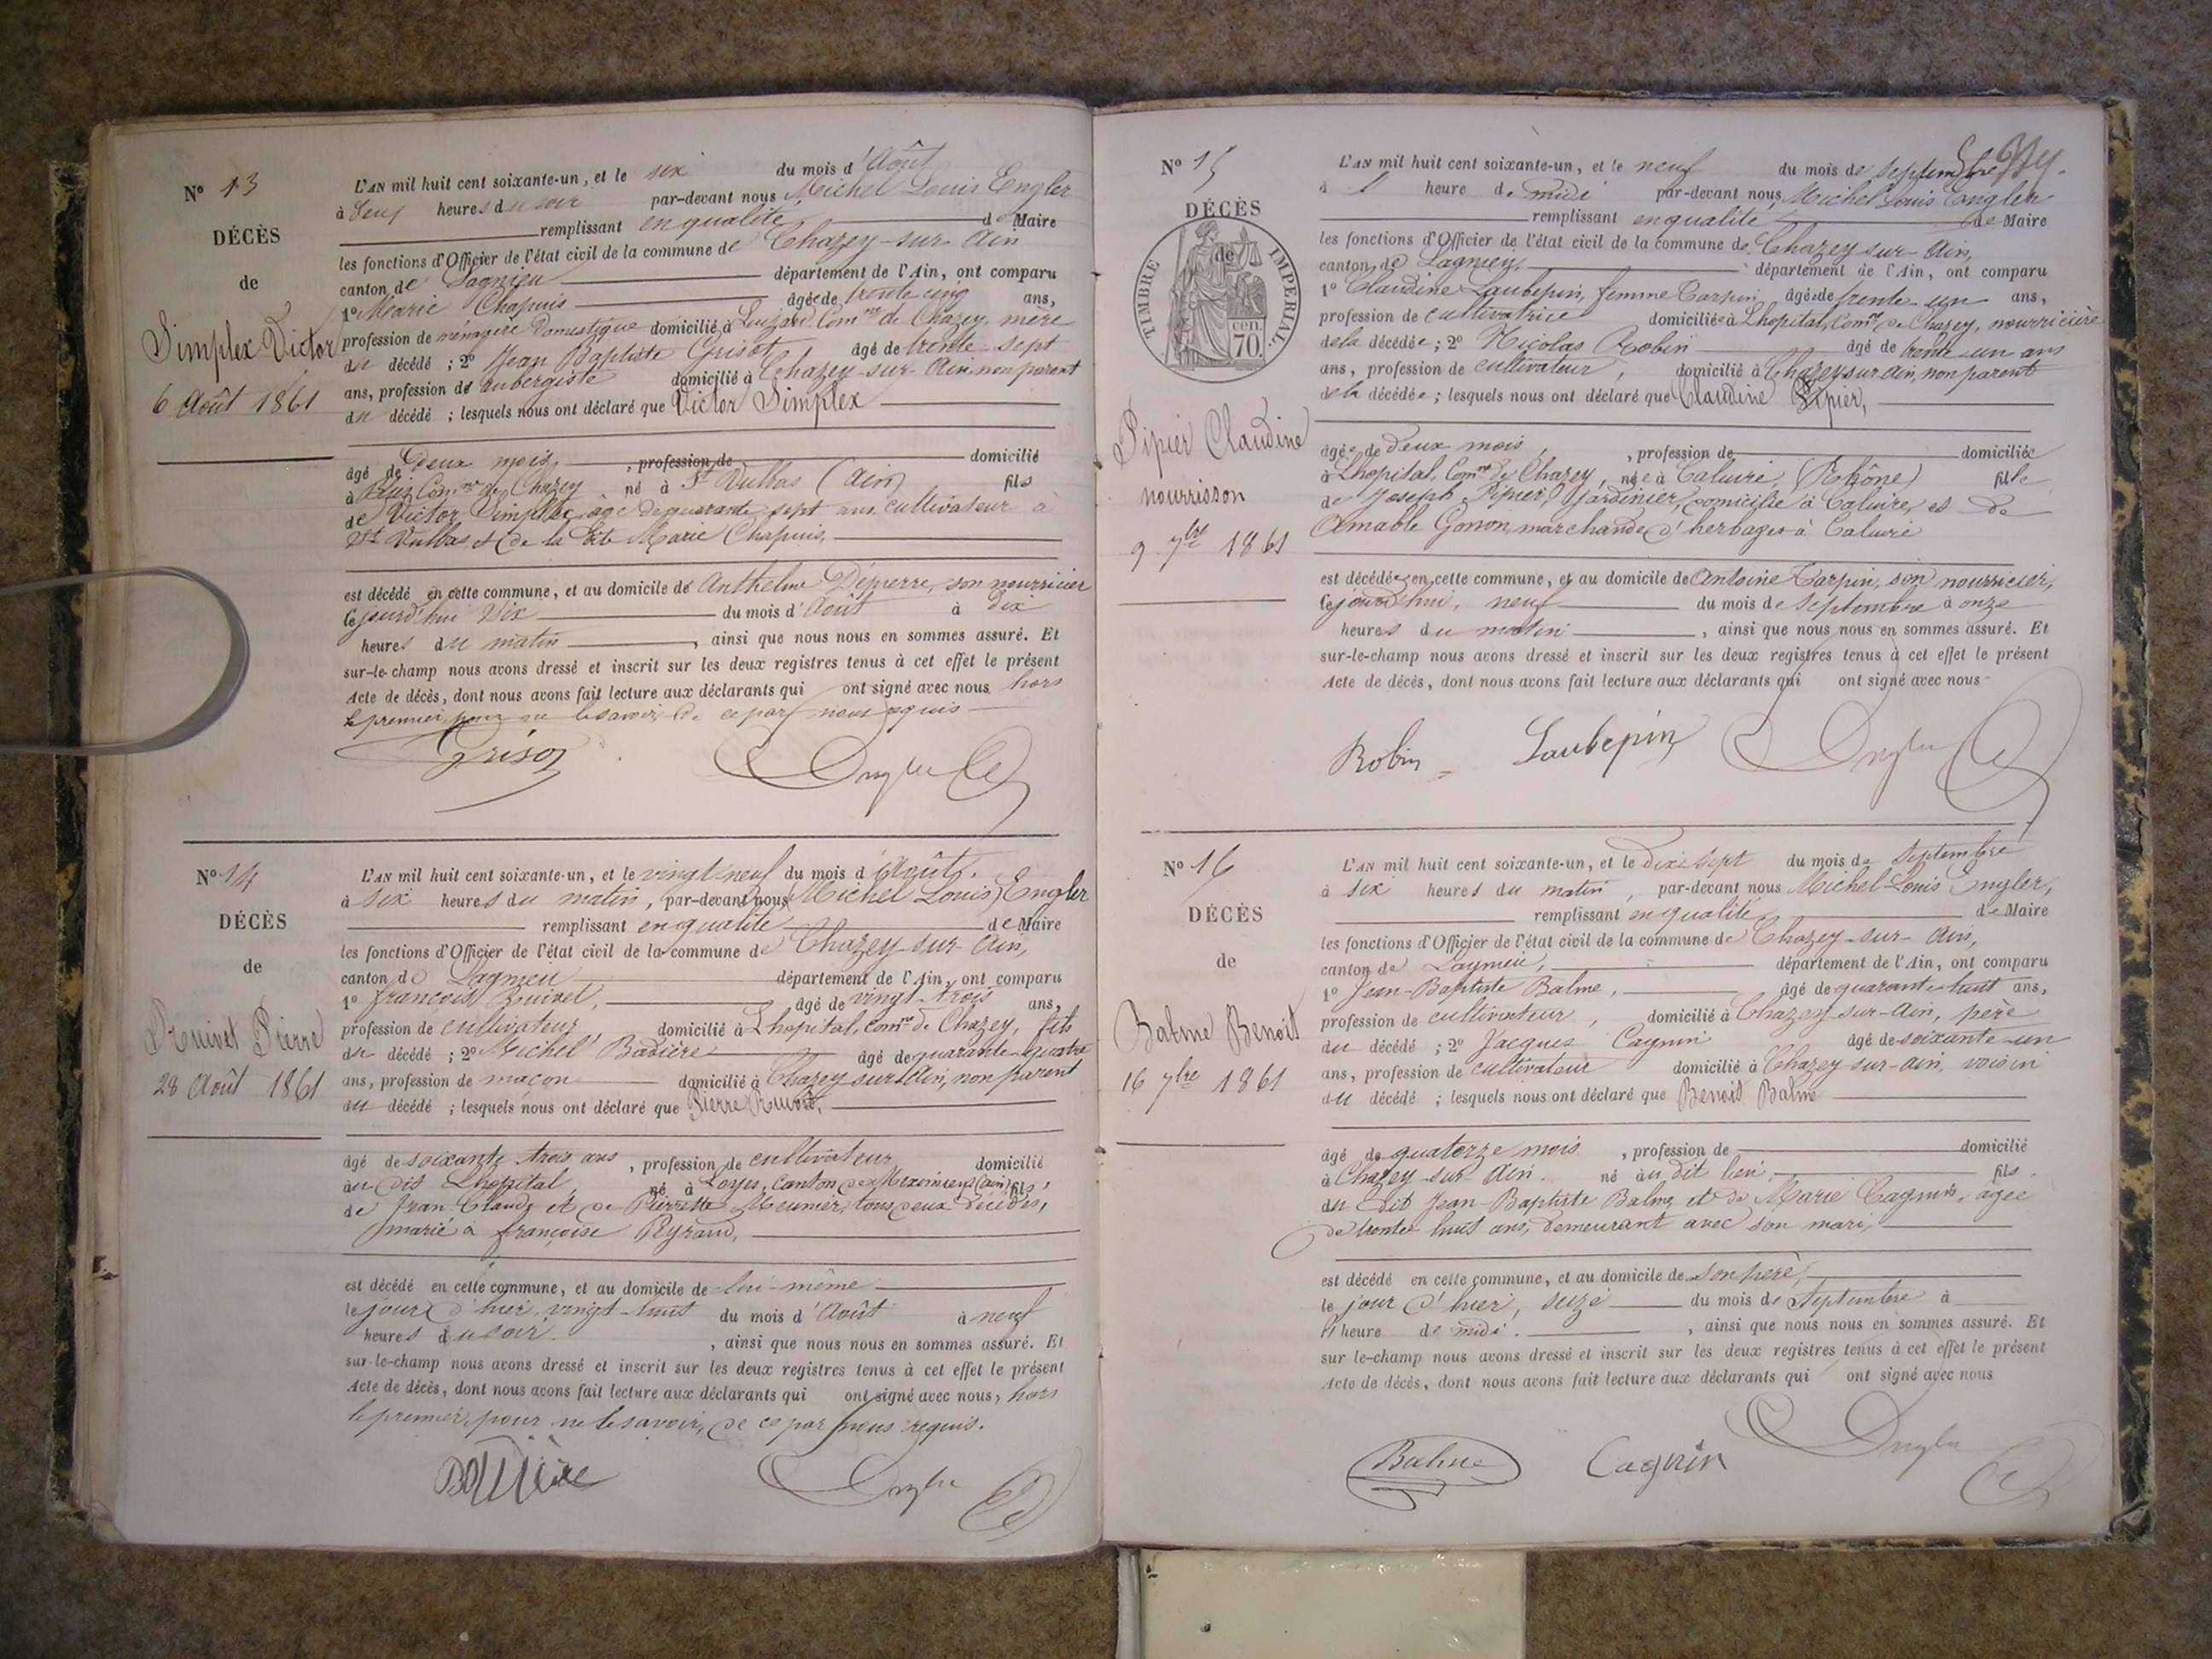 N° 13
DÉCÈS
de
Simplex Victor
6 Août 1861
L'AN mil huit cent soixante-un, et le six du mois d'Août
à heures du soir par-devant nous Michel Louis Engler
remplissant en qualité de Maire
les fonctions d'Officier de l'état civil de la commune de Chazey-sur-Ain
canton de Lagnieu département de l'Ain, ont comparu
1° Marie Chapuis âgée de trente cinq ans,
profession de ménagère domestique domicilié à Com.ne de Chazey, mère
du décédé ; 2° Jean Baptiste Grisot âgé de trente-sept
ans, profession de aubergiste domicilié à Chazey-sur-Ain non parent
du décédé ; lesquels nous ont déclaré que Victor Simplex
âgé de Deux mois, profession de domicilié
à Com.ne de Chazey né à St Vulbas (Ain) fils
de Victor Simplex âgé de quarante sept ans cultivateur à
St Vulbas et de la dite Marie Chapuis,
est décédé en cette commune, et au domicile de Anthelme Dépierre, son nourricier
cejourd'hui Dix du mois d'Août à dix
heures du matin, ainsi que nous nous en sommes assuré. Et
sur-le-champ nous avons dressé et inscrit sur les deux registres tenus à cet effet le présent
Acte de décès, dont nous avons fait lecture aux déclarants qui ont signé avec nous hors
le premier pour ne le savoir de ce par nous requis
Grisot Engler
N° 14
DÉCÈS
de
Ruivet Pierre
28 Août 1861
L'AN mil huit cent soixante-un, et le vingt neuf du mois d'Août.
à six heures du matin, par-devant nous Michel Louis Engler
remplissant en qualité de Maire
les fonctions d'Officier de l'état civil de la commune de Chazey-sur-Ain,
canton de Lagnieu département de l'Ain, ont comparu
1° François Ruivet, âgé de vingt-trois ans,
profession de cultivateur domicilié à Lhopital, com.ne de Chazey, fils
du décédé ; 2° Michel Badière âgé de quarante-quatre
ans, profession de maçon domicilié à Chazey sur Ain, non parent
du décédé ; lesquels nous ont déclaré que Pierre Ruivet,
âgé de soixante trois ans, profession de cultivateur domicilié
au dit Lhopital, né à Loyes, canton de Meximieux (ain) fils,
de Jean Claude et de Pierrette Meunier, tous deux décédés,
marié à françoise Reyraud,
est décédé en cette commune, et au domicile de lui-même
le jour d'hier, vingt-huit du mois d'Août à neuf
heures du soir, ainsi que nous nous en sommes assuré. Et
sur-le-champ nous avons dressé et inscrit sur les deux registres tenus à cet effet le présent
Acte de décès, dont nous avons fait lecture aux déclarants qui ont signé avec nous, hors
le premier, pour ne le savoir, de ce par nous requis.
Badière Engler
N° 15
DÉCÈS
de
TIMBRE IMPÉRIAL
70 cen.
Pipier Claudine
nourrisson
9 7bre 1861
L'AN mil huit cent soixante-un, et le neuf du mois de septembre
à 1 heure de midi par-devant nous Michel Louis Engler
remplissant en qualité de Maire
les fonctions d'Officier de l'état civil de la commune de Chazey-sur-Ain,
canton de Lagnieu, département de l'Ain, ont comparu
1° Claudine Laubepin, femme Carpin âgée de trente-un ans,
profession de cultivatrice domiciliée à Lhopital, Com.ne de Chazey, nourricière
de la décédée ; 2° Nicolas Robin âgé de trente-un ans
ans, profession de cultivateur, domicilié à Chazey sur Ain, non parent
de la décédée ; lesquels nous ont déclaré que Claudine Pipier,
âgée de Deux mois, profession de domiciliée
à Lhopital, Com.ne de Chazey, née à Caluire, (Rhône) fille
de Joseph Pipier, Jardinier, domicilié à Caluire, et de
Amable Gonon, marchande d'herbages à Caluire
est décédée en cette commune, et au domicile de Antoine Carpin, son nourricier,
cejourd'hui, neuf du mois de septembre à onze
heures du matin, ainsi que nous nous en sommes assuré. Et
sur-le-champ nous avons dressé et inscrit sur les deux registres tenus à cet effet le présent
Acte de décès, dont nous avons fait lecture aux déclarants qui ont signé avec nous
Robin Laubepin Engler
N° 16
DÉCÈS
de
Balme Benoit
16 7bre 1861
L'AN mil huit cent soixante-un, et le dix-sept du mois de Septembre
à six heures du matin, par-devant nous Michel Louis Engler,
remplissant en qualité de Maire
les fonctions d'Officier de l'état civil de la commune de Chazey-sur-Ain,
canton de Lagnieu, département de l'Ain, ont comparu
1° Jean-Baptiste Balme, âgé de quarante-huit ans,
profession de cultivateur, domicilié à Chazey-sur-Ain, père
du décédé ; 2° Jacques Cagnin âgé de soixante-un
ans, profession de cultivateur domicilié à Chazey-sur-Ain, voisin
du décédé ; lesquels nous ont déclaré que Benoit Balme
âgé de quatorze mois, profession de domicilié
à Chazey-sur-Ain né au dit lieu, fils
du dit Jean-Baptiste Balme et de Marie Cagnin, âgée
de trente-huit ans, demeurant avec son mari,
est décédé en cette commune, et au domicile de son père,
le jour d'hier, seize du mois de Septembre à
1 heure de midi., ainsi que nous nous en sommes assuré. Et
sur le-champ nous avons dressé et inscrit sur les deux registres tenus à cet effet le présent
Acte de décès, dont nous avons fait lecture aux déclarants qui ont signé avec nous
Balme Cagnin Engler